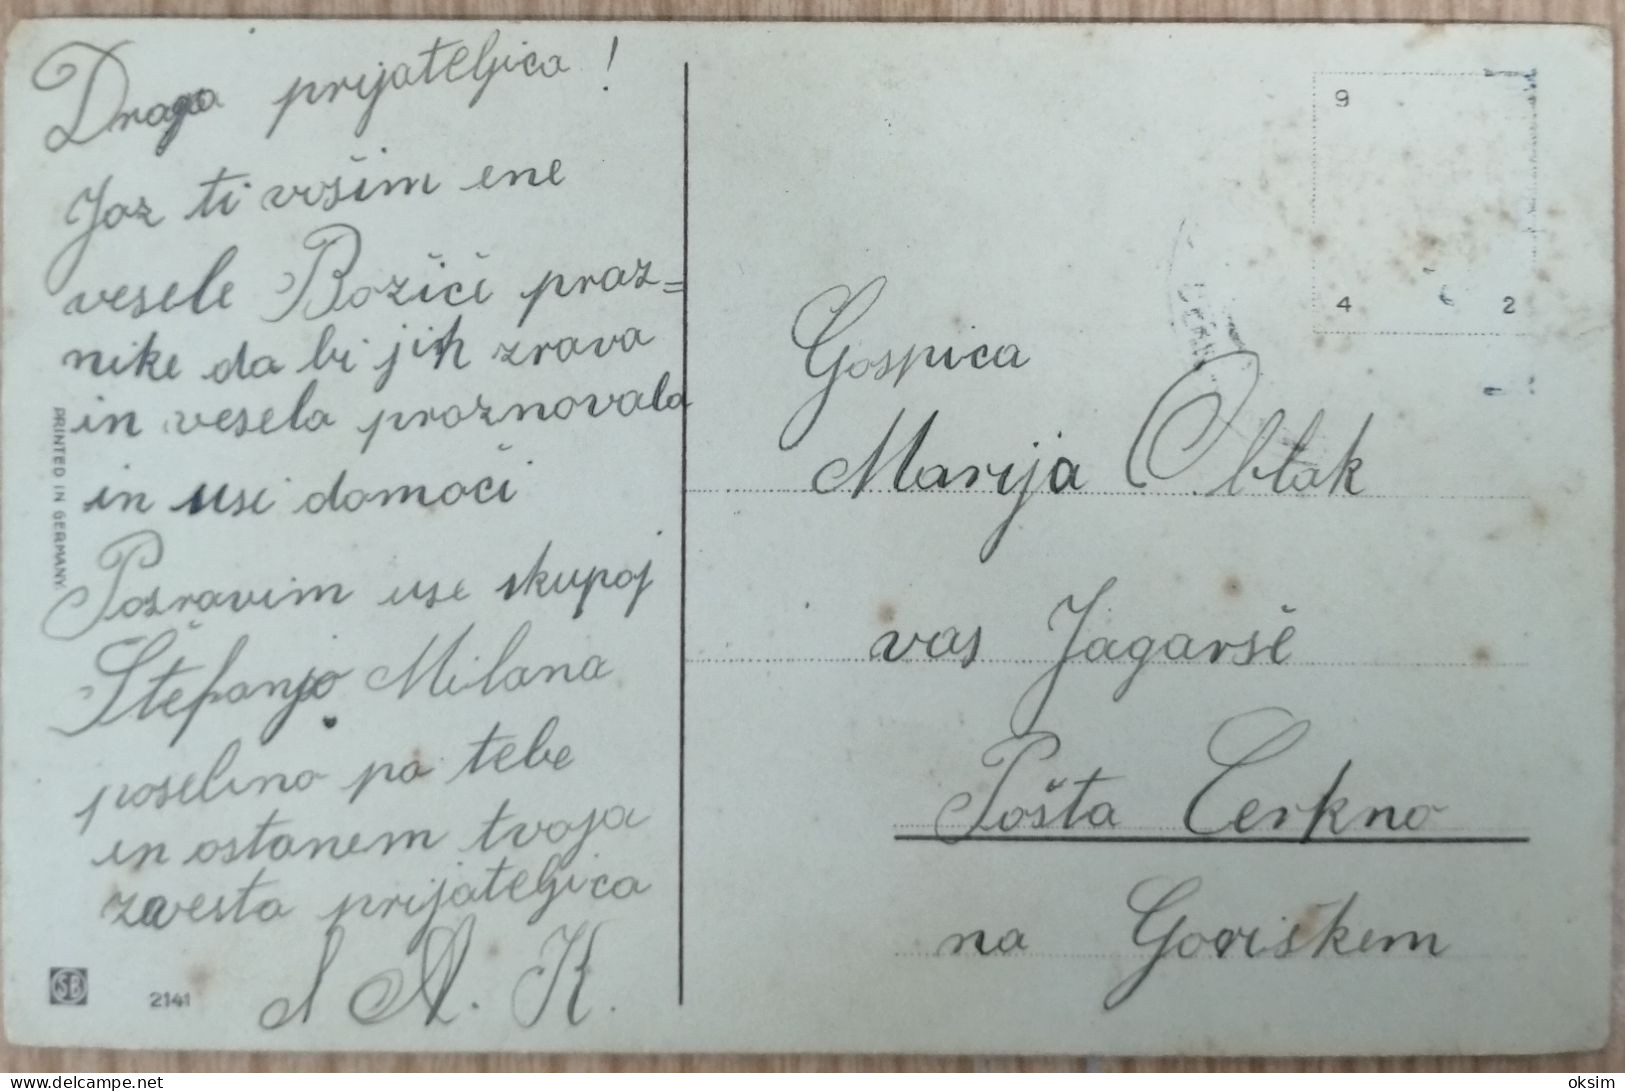 Draga prijateljica!
Jaz ti vošim ene
vesele Božiči praz=
nike da bi jih zrava
in vesela praznovala
in usi domači
Pozravim use skupaj
Štefanjo Milana
poselino pa tebe
in ostanem tvoja
zvesta prijateljica
A. K.
PRINTED IN GERMANY
SB
2141
9
4 2
Gospica
Marija Oblak
vas Jagarše
Pošta Cerkno
na Goriškem
oksim